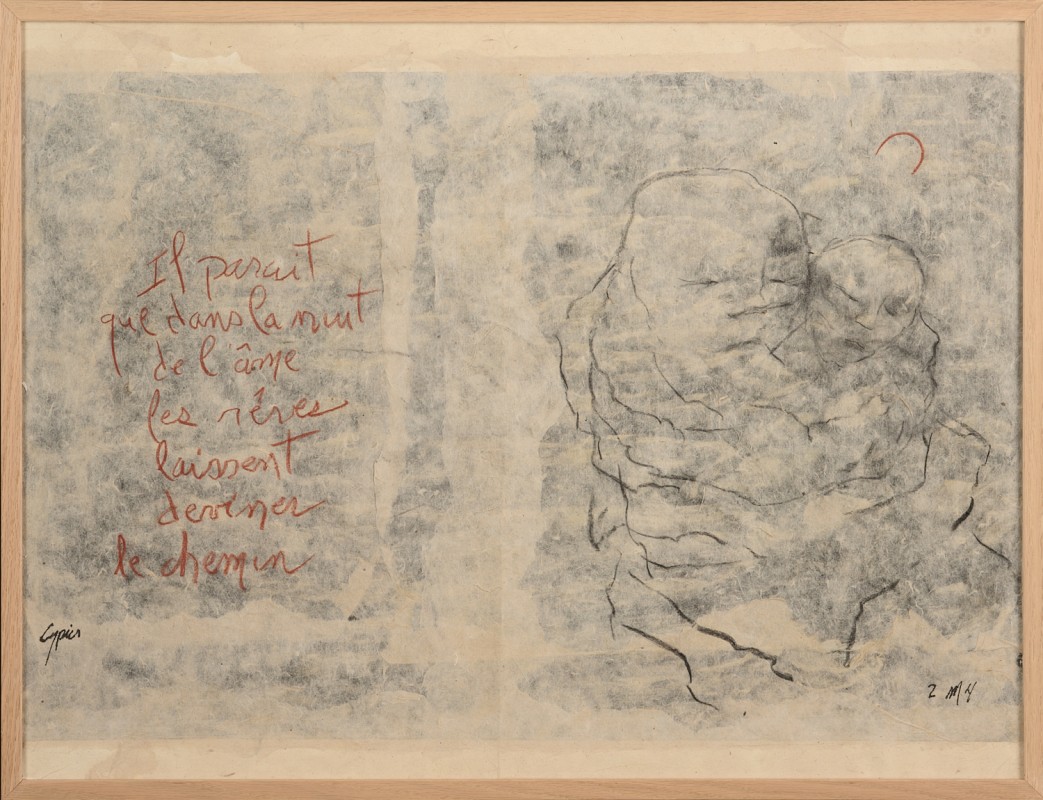 Il parait
que dans la nuit
de l'âme
les rêves
laissent
deviner
le chemin
Cypier